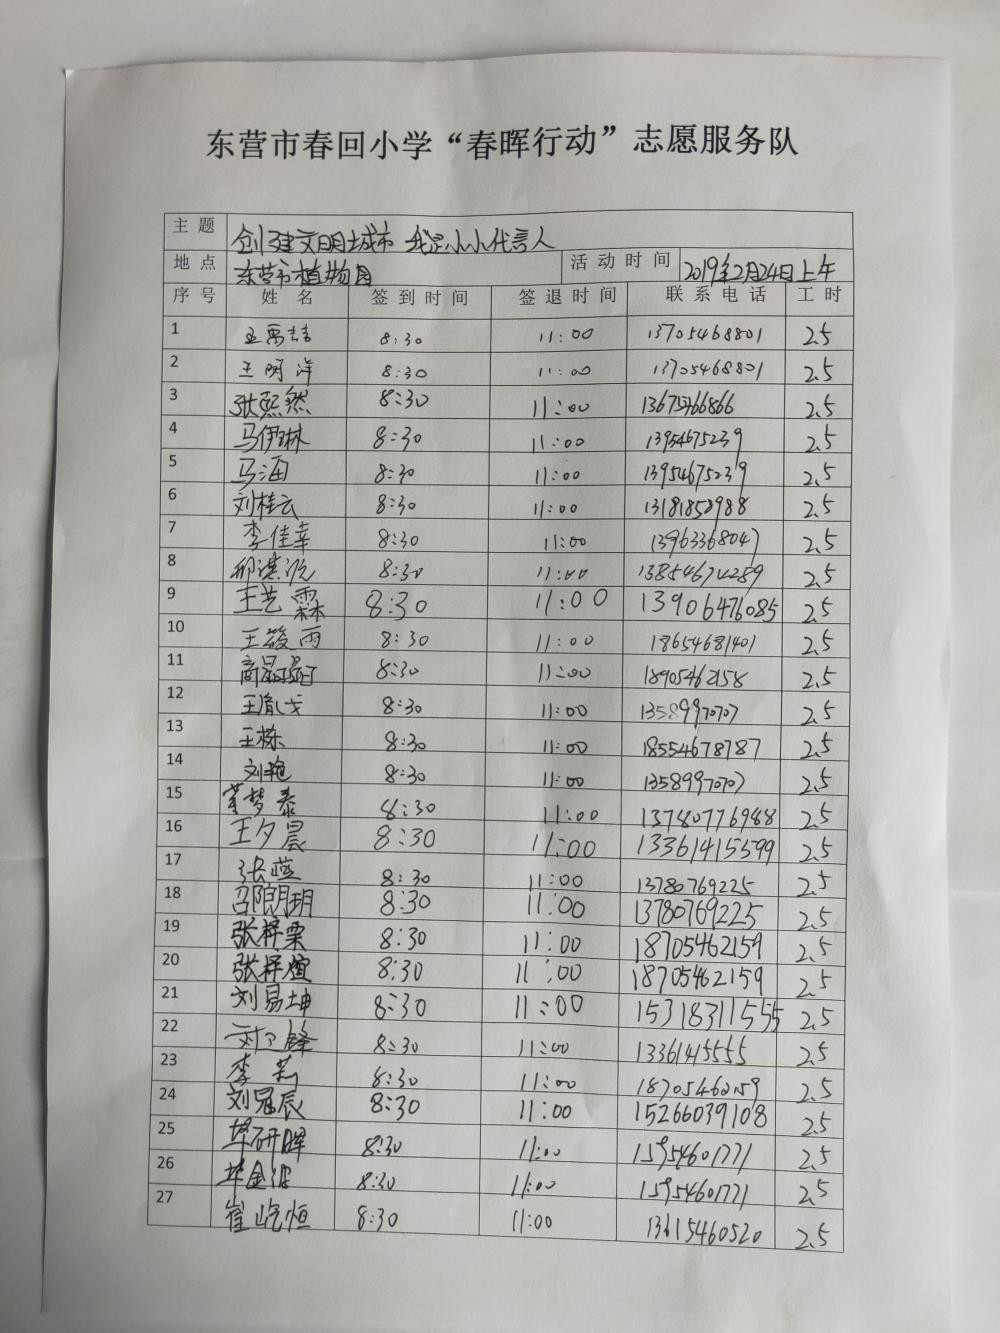 东营市春回小学“春晖行动”志愿服务队
主题 创建文明城市 我是小小代言人
地点 东营市植物园 活动时间 2019年2月24日上午
序号 姓名 签到时间 签退时间 联系电话 工时
1 8:30 11:00 13705468801 2.5
2 王明洋 8:30 11:00 13705468801 2.5
3 张熙然 8:30 11:00 2.5
4 马伊琳 8:30 11:00 13954675239 2.5
5 马海 8:30 11:00 13954675239 2.5
6 刘桂云 8:30 11:00 13181858988 2.5
7 李佳幸 8:30 11:00 13963368047 2.5
8 8:30 11:00 13854674259 2.5
9 王艺霖 8:30 11:00 13906476085 2.5
10 王筱雨 8:30 11:00 18654681401 2.5
11 8:30 11:00 18905462158 2.5
12 8:30 11:00 13589970707 2.5
13 王栋 8:30 11:00 18554678787 2.5
14 刘艳 8:30 11:00 13589970707 2.5
15 董梦泰 8:30 11:00 13780776988 2.5
16 王夕晨 8:30 11:00 2.5
17 张燕 8:30 11:00 13780769225 2.5
18 邵朗玥 8:30 11:00 13780769225 2.5
19 张梓栗 8:30 11:00 18705462159 2.5
20 张梓煊 8:30 11:00 18705462159 2.5
21 刘易坤 8:30 11:00 15318311555 2.5
22 8:30 11:00 13361415555 2.5
23 李莉 8:30 11:00 18705462159 2.5
24 刘冠辰 8:30 11:00 15266039108 2.5
25 毕研晖 8:30 11:00 15954601771 2.5
26 毕金波 8:30 11:00 15954601771 2.5
27 崔屹恒 8:30 11:00 13615460520 2.5